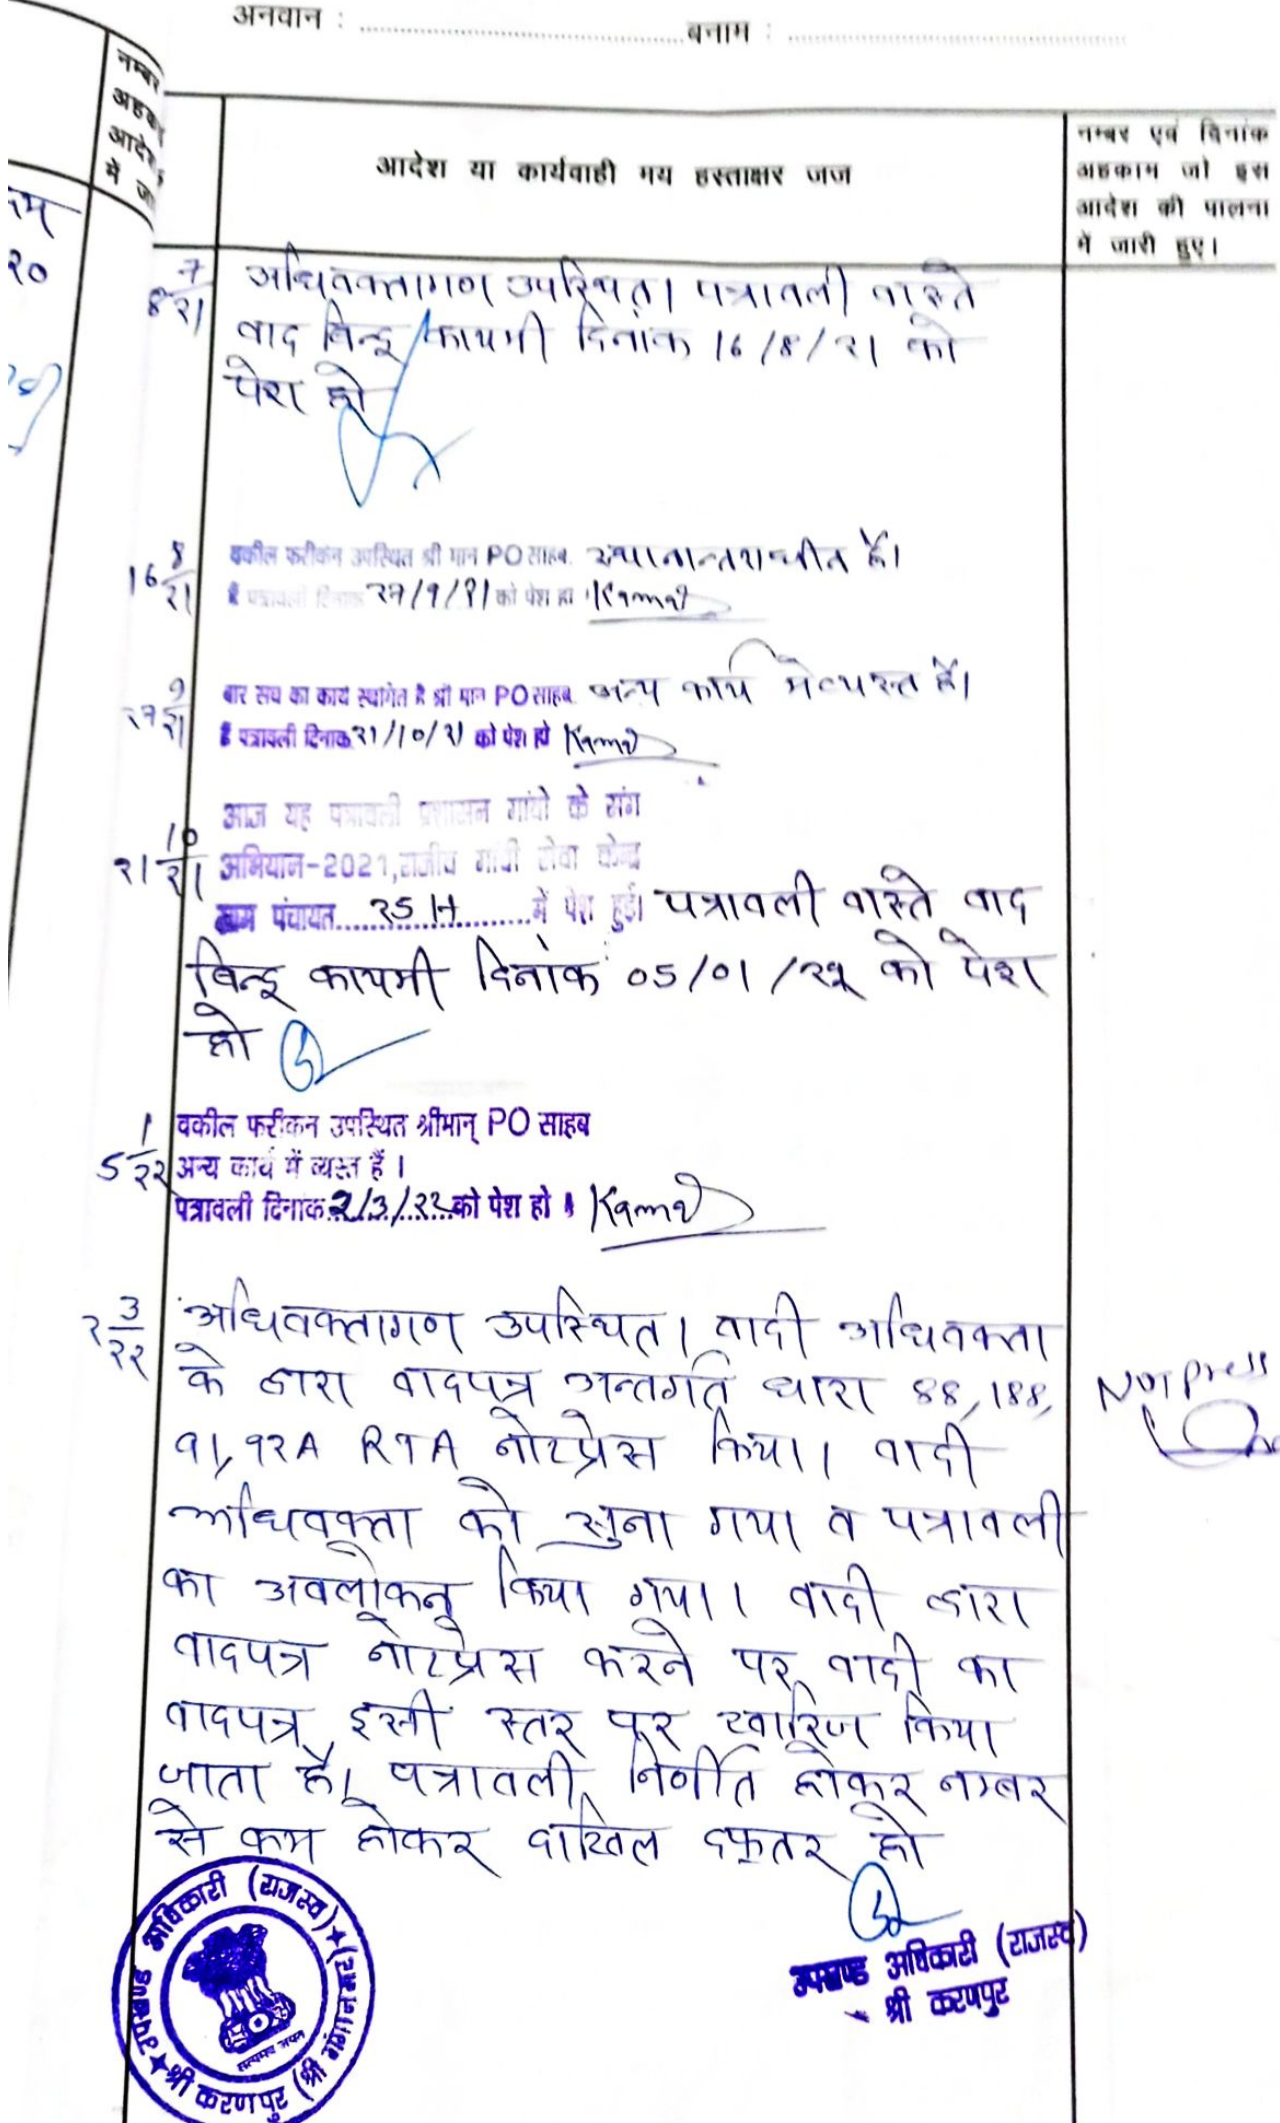 अनवान : ............ बनाम : ............
नम्बर
अहका
आदेश
में जा
आदेश या कार्यवाही मय हस्ताक्षर जज
नम्बर एवं दिनांक
अहकाम जो इस
आदेश की पालना
में जारी हुए।
२०
7/8/२1 अधिवक्तागण उपस्थित। पत्रावली वास्ते
वाद बिन्दू कायमी दिनांक 16/8/२1 को
पेश हो
16 8/२1 वकील फरीकन उपस्थित श्री मान PO साहब. स्थानान्तराधीन है।
है पत्रावली दिनांक 27/9/२1 को पेश हो Kamal
२७ 9/२1 बार संघ का कार्य स्थगित है श्री मान PO साहब. अन्य कार्य मे व्यस्त है।
है पत्रावली दिनांक २1/10/२1 को पेश हो Kamal
आज यह पत्रावली प्रशासन गांवो के संग
२1 10/२1 अभियान-2021, राजीव गांधी सेवा केन्द्र
ग्राम पंचायत....२5 H........में पेश हुई। पत्रावली वास्ते वाद
बिन्दू कायमी दिनांक 05/01/२२ को पेश
हो
5 1/२२ वकील फरीकन उपस्थित श्रीमान् PO साहब
अन्य कार्य में व्यस्त हैं ।
पत्रावली दिनांक 2/3/२२ को पेश हो । Kamal
२ 3/२२ अधिवक्तागण उपस्थित। वादी अधिवक्ता
के द्वारा वादपत्र अन्तर्गत धारा 88,188,
९1,९२A RTA नोटप्रेस किया। वादी
Not press
अधिवक्ता को सुना गया व पत्रावली
का अवलोकन किया गया। वादी द्वारा
वादपत्र नोटप्रेस करने पर वादी का
वादपत्र इसी स्तर पर खारिज किया
जाता है। पत्रावली निर्णीत होकर नम्बर
से कम होकर दाखिल दफ्तर हो
उपखण्ड अधिकारी (राजस्व)
श्री करणपुर
उपखण्ड अधिकारी (राजस्व)
श्री करणपुर (श्री गंगानगर)
सत्यमेव जयते